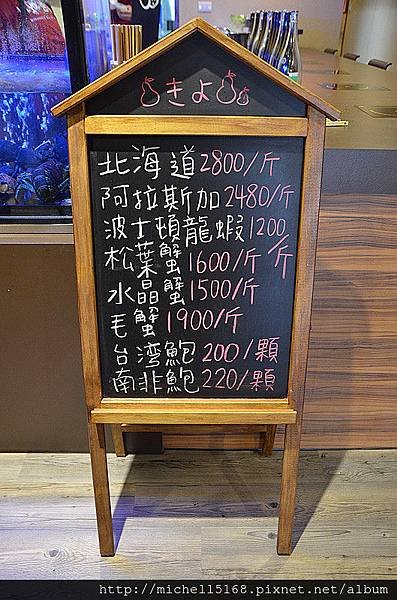 きよ
北海道2800/斤
阿拉斯加2480/斤
波士頓龍蝦1200/斤
松葉蟹1600/斤
水晶蟹1500/斤
毛蟹1900/斤
台湾鮑200/顆
南非鮑220/顆
http://michell5168.pixnet.net/album